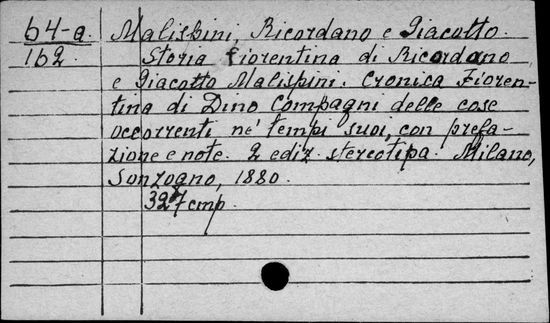 64-a. Malispini, Ricordano e Giacotto.
162. Storia fiorentina di Ricordano
e Giacotto Malispini. Cronica Fioren-
tina di Dino Compagni delle cose
occorrenti ne' tempi suoi, con prefa-
zione e note. 2 ediz. stereotipa. Milano,
Sonzogno, 1880.
327 cmp.